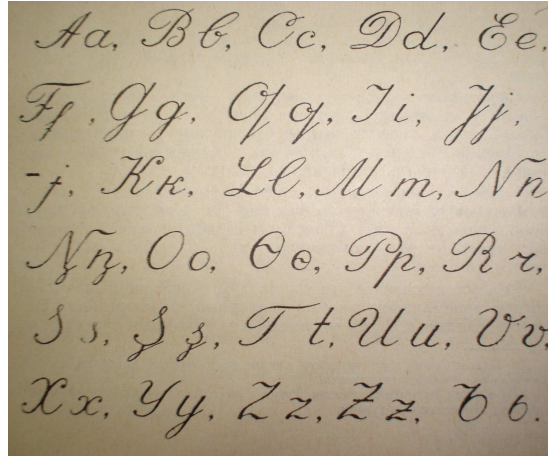 Aa, Bʙ, Cc, Dd, Ee,
Ff, Gg, Ƣƣ, Ii, Jj,
-j, Kк, Ll, Mm, Nn
Ņņ, Oo, Ɵɵ, Pp, Rr,
Ss, Şş, Tt, Uu, Vv,
Xx, Yy, Zz, Ƶƶ, Ьь.